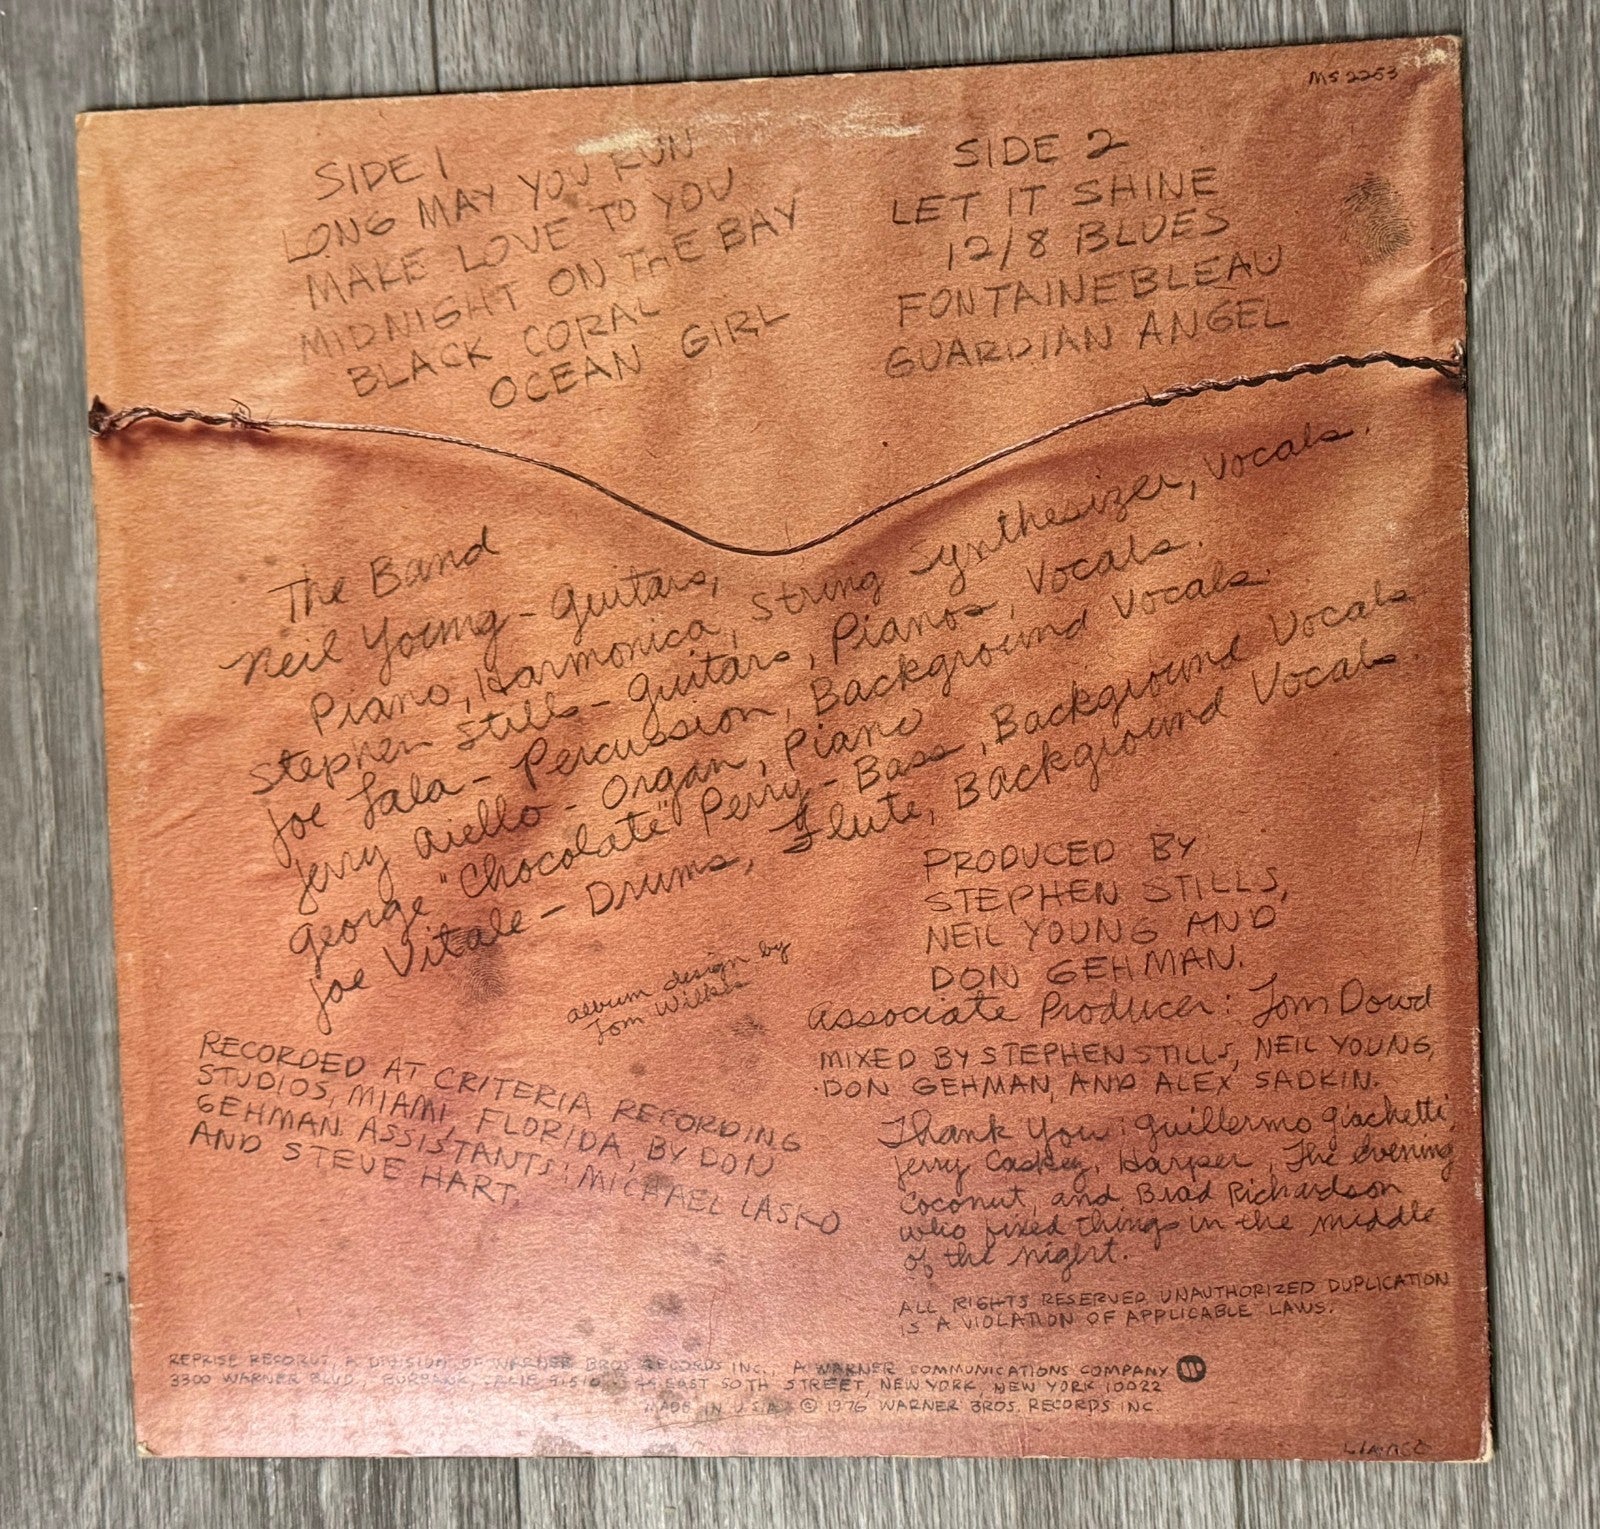 MS 2253
SIDE 1
LONG MAY YOU RUN
MAKE LOVE TO YOU
MIDNIGHT ON THE BAY
BLACK CORAL
OCEAN GIRL
SIDE 2
LET IT SHINE
12/8 BLUES
FONTAINEBLEAU
GUARDIAN ANGEL
The Band
Neil Young - Guitars,
Piano, Harmonica, String Synthesizer, Vocals.
Stephen Stills - Guitars, Pianos, Vocals.
Joe Lala - Percussion, Background Vocals.
Jerry Aiello - Organ, Piano
George "Chocolate" Perry - Bass, Background Vocals
Joe Vitale - Drums, Flute, Background Vocals.
album design by
Tom Wilkes
PRODUCED BY
STEPHEN STILLS,
NEIL YOUNG AND
DON GEHMAN.
Associate Producer: Tom Dowd
MIXED BY STEPHEN STILLS, NEIL YOUNG,
DON GEHMAN, AND ALEX SADKIN.
RECORDED AT CRITERIA RECORDING
STUDIOS, MIAMI, FLORIDA, BY DON
GEHMAN. ASSISTANTS: MICHAEL LASKO
AND STEVE HART.
Thank You: Guillermo Giachetti,
Jerry Caskey, Harper, The Evening
Coconut, and Brad Richardson
who fixed things in the middle
of the night.
ALL RIGHTS RESERVED UNAUTHORIZED DUPLICATION
IS A VIOLATION OF APPLICABLE LAWS.
REPRISE RECORDS, A DIVISION OF WARNER BROS. RECORDS INC., A WARNER COMMUNICATIONS COMPANY
3300 WARNER BLVD., BURBANK, CALIF. 91510 EAST 50TH STREET, NEW YORK, NEW YORK 10022
MADE IN U.S.A. © 1976 WARNER BROS. RECORDS INC.